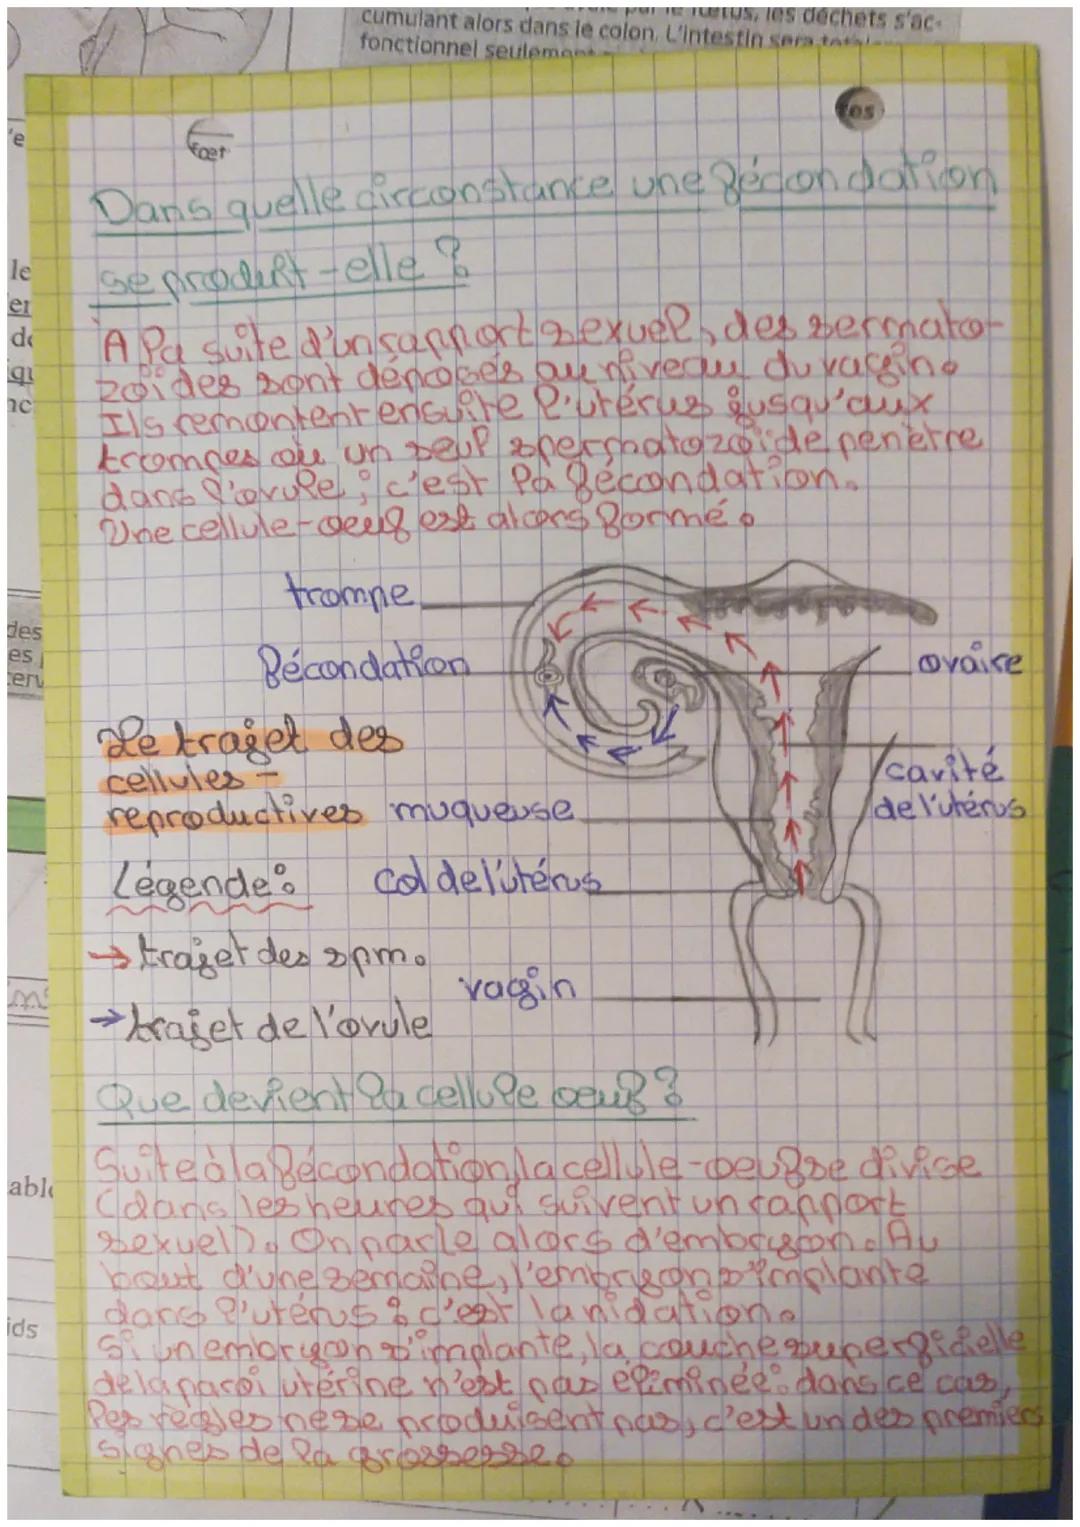 cumulant alors dans le colon. L'intestin sera
fonctionnel seulement
Dans quelle circonstance une fécondation
se produit-elle ?
A la suite d'un rapport sexuel, des sermato-
zoïdes sont déposés au niveau du vagin.
Ils remontent ensuite l'utérus jusqu'aux
trompes où un seul spermatozoïde penètre
dans l'ovule ; c'est la fécondation.
Une cellule-oeuf est alors formé.
trompe
fécondation
ovaire
Le trajet des
cellules-
reproductives
muqueuse
cavité
de l'utérus
Légende :
col de l'utérus
→ trajet des spm.
vagin
→ trajet de l'ovule
Que devient la cellule oeuf ?
Suite à la fécondation, la cellule-oeuf se divise
(dans les heures qui suivent un rapport
sexuel). On parle alors d'embryon. Au
bout d'une semaine, l'embryon s'implante
dans l'utérus : c'est la nidation.
Si un embryon s'implante, la couche superficielle
de la paroi utérine n'est pas éliminée : dans ce cas,
les règles ne se produisent pas, c'est un des premiers
signes de la grossesse.